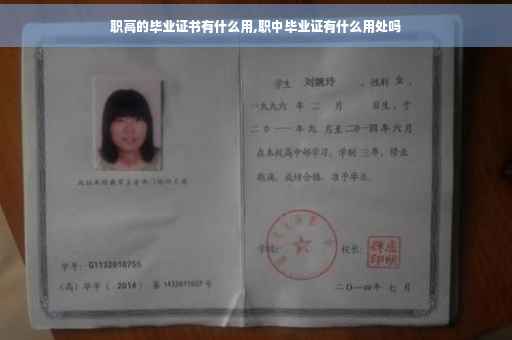 职高的毕业证书有什么用,职中毕业证有什么用处吗
学生 刘婉玲 , 性别 女 ,
一九九六 年 二 月 日生, 于
二〇一一 年 九 月至 二〇一四 年 六 月
在本校高中部学习, 学制 三 年, 修业
期满, 成绩合格, 准予毕业。
学校: 校长:
二〇一四年 七 月
学号: G1132010755
(高) 毕字 ( 2014 ) 第 1432011027 号